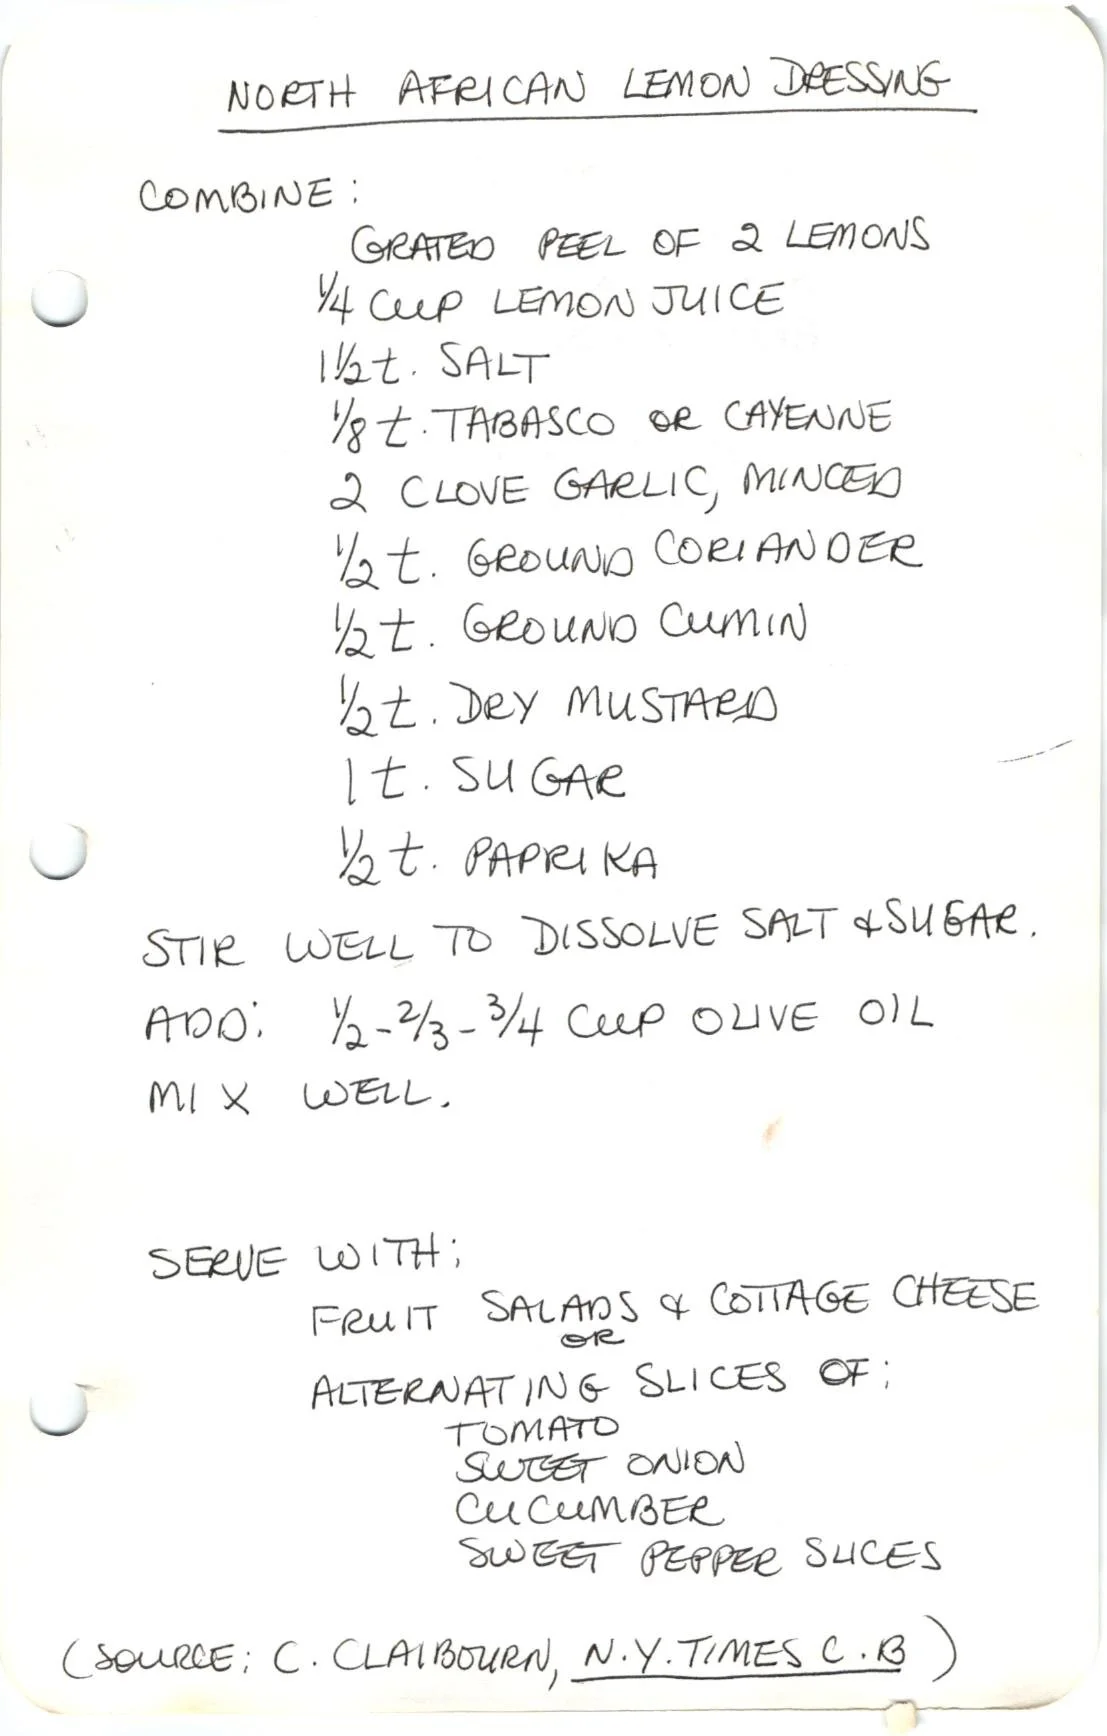 NORTH AFRICAN LEMON DRESSING
COMBINE:
GRATED PEEL OF 2 LEMONS
1/4 CUP LEMON JUICE
1 1/2 t. SALT
1/8 t. TABASCO OR CAYENNE
2 CLOVE GARLIC, MINCED
1/2 t. GROUND CORIANDER
1/2 t. GROUND CUMIN
1/2 t. DRY MUSTARD
1 t. SUGAR
1/2 t. PAPRIKA
STIR WELL TO DISSOLVE SALT & SUGAR.
ADD: 1/2 - 2/3 - 3/4 CUP OLIVE OIL
MIX WELL.
SERVE WITH:
FRUIT SALADS & COTTAGE CHEESE
OR
ALTERNATING SLICES OF:
TOMATO
SWEET ONION
CUCUMBER
SWEET PEPPER SLICES
(SOURCE: C. CLAIBOURN, N.Y. TIMES C.B)